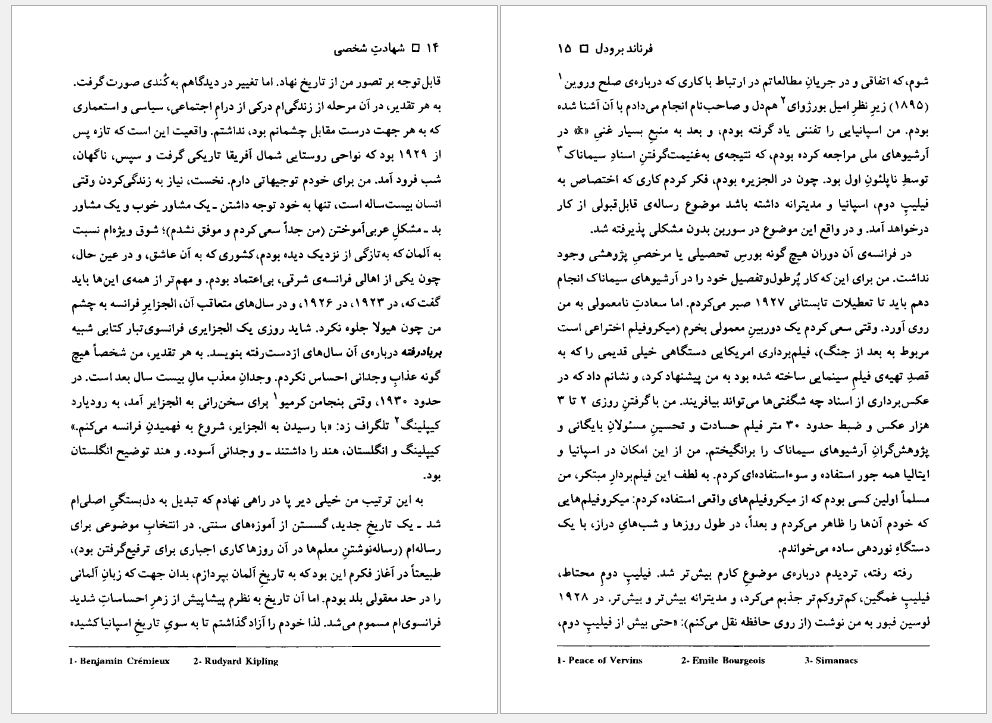 ۱۴ □ شهادتِ شخصی
قابل‌توجه بر تصور من از تاریخ نهاد. اما تغییر در دیدگاهم به‌کُندی صورت گرفت.
به هر تقدیر، در آن مرحله از زندگی‌ام درکی از درامِ اجتماعی، سیاسی و استعماری
که به هر جهت درست مقابل چشمانم بود، نداشتم. واقعیت این است که تازه پس
از ۱۹۲۹ بود که نواحی روستایی شمال آفریقا تاریکی گرفت و سپس، ناگهان،
شب فرود آمد. من برای خودم توجیهاتی دارم. نخست، نیاز به زندگی‌کردن وقتی
انسان بیست‌ساله است، تنها به خود توجه داشتن ـ یک مشاور خوب و یک مشاور
بد ـ مشکلِ عربی‌آموختن (من جداً سعی کردم و موفق نشدم)؛ شوق ویژه‌ام نسبت
به آلمان که به‌تازگی از نزدیک دیده بودم، کشوری که به آن عاشق، و در عین حال،
چون یکی از اهالی فرانسه‌ی شرقی، بی‌اعتماد بودم. و مهم‌تر از همه‌ی این‌ها باید
گفت که، در ۱۹۲۳، در ۱۹۲۶، و در سال‌های متعاقب آن، الجزایرِ فرانسه به چشم
من چون هیولا جلوه نکرد. شاید روزی یک الجزایری فرانسوی‌تبار کتابی شبیه
بربادرفته درباره‌ی آن سال‌های ازدست‌رفته بنویسد. به هر تقدیر، من شخصاً هیچ
گونه عذابِ وجدانی احساس نکردم. وجدانِ معذب مالِ بیست سال بعد است. در
حدود ۱۹۳۰، وقتی بنجامن کرمیو۱ برای سخن‌رانی به الجزایر آمد، به رودیارد
کیپلینگ۲ تلگراف زد: «با رسیدن به الجزایر، شروع به فهمیدنِ فرانسه می‌کنم.»
کیپلینگ و انگلستان، هند را داشتند ـ و وجدانی آسوده. و هند توضیح انگلستان
بود.
به این ترتیب من خیلی دیر پا در راهی نهادم که تبدیل به دل‌بستگیِ اصلی‌ام
شد ـ یک تاریخِ جدید، گسستن از آموزه‌های سنتی. در انتخابِ موضوعی برای
رساله‌ام (رساله‌نوشتنِ معلم‌ها در آن روزها کاری اجباری برای ترفیع‌گرفتن بود)،
طبیعتاً در آغاز فکرم این بود که به تاریخِ آلمان بپردازم، بدان جهت که زبانِ آلمانی
را در حد معقولی بلد بودم. اما آن تاریخ به نظرم پیشاپیش از زهرِ احساساتِ شدید
فرانسوی‌ام مسموم می‌شد. لذا خودم را آزاد گذاشتم تا به سوی تاریخِ اسپانیا کشیده
1- Benjamin Crémieux 2- Rudyard Kipling
فرناند برودل □ ۱۵
شوم، که اتفاقی و در جریانِ مطالعاتم در ارتباط با کاری که درباره‌ی صلح وروین۱
(۱۸۹۵) زیرِ نظرِ امیل بورژوای۲ هم‌دل و صاحب‌نام انجام می‌دادم با آن آشنا شده
بودم. من اسپانیایی را تفننی یاد گرفته بودم، و بعد به منبعِ بسیار غنیِ «k» در
آرشیوهای ملی مراجعه کرده بودم، که نتیجه‌ی به‌غنیمت‌گرفتنِ اسنادِ سیماناک۳
توسطِ ناپلئونِ اول بود. چون در الجزیره بودم، فکر کردم کاری که اختصاص به
فیلیپِ دوم، اسپانیا و مدیترانه داشته باشد موضوع رساله‌ی قابل‌قبولی از کار
درخواهد آمد. و در واقع این موضوع در سوربن بدون مشکلی پذیرفته شد.
در فرانسه‌ی آن دوران هیچ گونه بورسِ تحصیلی یا مرخصیِ پژوهشی وجود
نداشت. من برای این که کارِ پُرطول‌وتفصیل خود را در آرشیوهای سیماناک انجام
دهم باید تا تعطیلات تابستانی ۱۹۲۷ صبر می‌کردم. اما سعادتِ نامعمولی به من
روی آورد. وقتی سعی کردم یک دوربینِ معمولی بخرم (میکروفیلم اختراعی است
مربوط به بعد از جنگ)، فیلم‌برداری امریکایی دستگاهی خیلی قدیمی را که به
قصدِ تهیه‌ی فیلمِ سینمایی ساخته شده بود به من پیشنهاد کرد، و نشانم داد که در
عکس‌برداری از اسناد چه شگفتی‌ها می‌تواند بیافریند. من با گرفتنِ روزی ۲ تا ۳
هزار عکس و ضبط حدود ۳۰ متر فیلم حسادت و تحسینِ مسئولانِ بایگانی و
پژوهش‌گرانِ آرشیوهای سیماناک را برانگیختم. من از این امکان در اسپانیا و
ایتالیا همه جور استفاده و سوءاستفاده‌ای کردم. به لطف این فیلم‌بردارِ مبتکر، من
مسلماً اولین کسی بودم که از میکروفیلم‌های واقعی استفاده کردم: میکروفیلم‌هایی
که خودم آن‌ها را ظاهر می‌کردم و بعداً، در طول روزها و شب‌هایِ دراز، با یک
دستگاهِ نوردهی ساده می‌خواندم.
رفته رفته، تردیدم درباره‌ی موضوع کارم بیش‌تر شد. فیلیپِ دومِ محتاط،
فیلیپِ غمگین، کم‌تروکم‌تر جذبم می‌کرد، و مدیترانه بیش‌تر و بیش‌تر. در ۱۹۲۸
لوسین فبور به من نوشت (از روی حافظه نقل می‌کنم): «حتی بیش از فیلیپ دوم،
1- Peace of Vervins 2- Emile Bourgeois 3- Simanacs